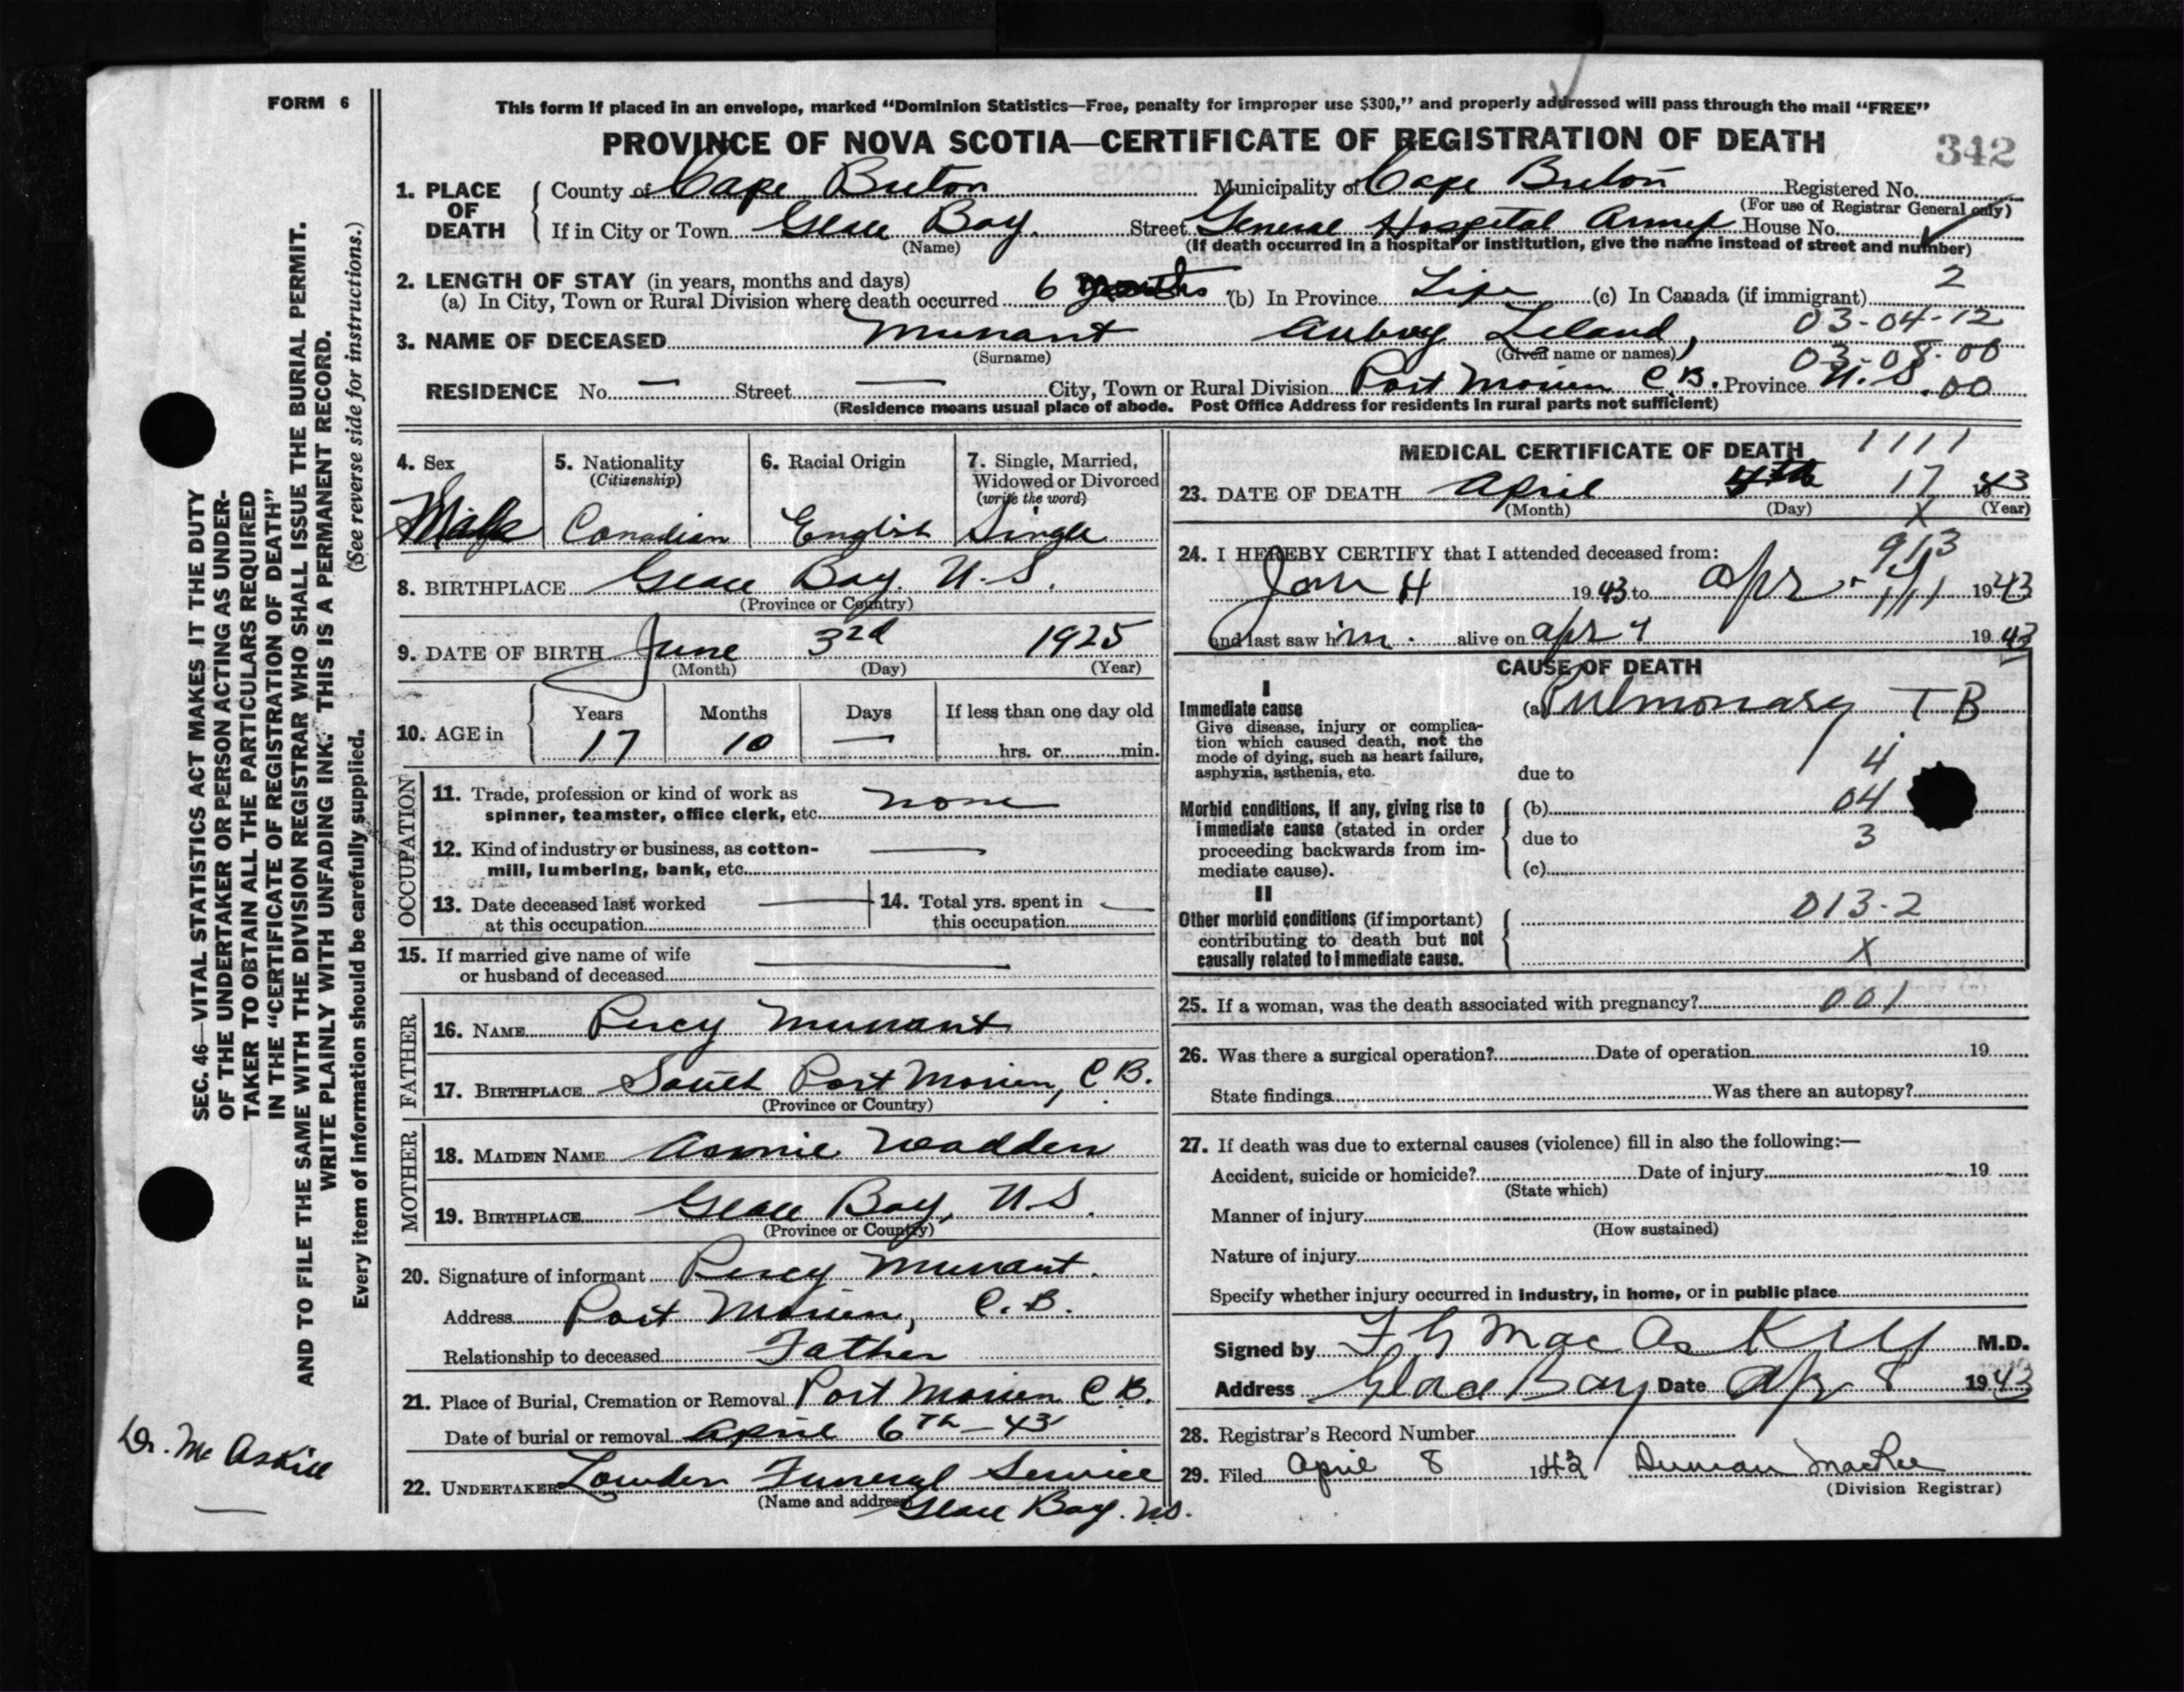 FORM 6
This form if placed in an envelope, marked “Dominion Statistics—Free, penalty for improper use $300,” and properly addressed will pass through the mail “FREE”
PROVINCE OF NOVA SCOTIA—CERTIFICATE OF REGISTRATION OF DEATH
342
1. PLACE OF DEATH County of Cape Breton Municipality of Cape Breton Registered No.
(For use of Registrar General only)
If in City or Town Glace Bay. Street General Hospital Annex House No.
(Name) (If death occurred in a hospital or institution, give the name instead of street and number)
2. LENGTH OF STAY (in years, months and days) 2
(a) In City, Town or Rural Division where death occurred 6 months (b) In Province Life (c) In Canada (if immigrant)
03-04-12
3. NAME OF DECEASED Munant Aubrey Leland,
(Surname) (Given name or names) 03-08-00
RESIDENCE No. — Street — City, Town or Rural Division Port Morien C B. Province N. S. 00
(Residence means usual place of abode. Post Office Address for residents in rural parts not sufficient)
4. Sex
Male
5. Nationality
(Citizenship)
Canadian
6. Racial Origin
English
7. Single, Married,
Widowed or Divorced
(write the word)
Single
8. BIRTHPLACE Glace Bay. N. S.
(Province or Country)
9. DATE OF BIRTH June 3rd 1925
(Month) (Day) (Year)
10. AGE in Years Months Days If less than one day old
17 10 — hrs. or min.
OCCUPATION
11. Trade, profession or kind of work as
spinner, teamster, office clerk, etc. none
12. Kind of industry or business, as cotton-
mill, lumbering, bank, etc. —
13. Date deceased last worked
at this occupation —
14. Total yrs. spent in
this occupation —
15. If married give name of wife
or husband of deceased —
FATHER
16. NAME Percy Munant
17. BIRTHPLACE South Port Morien, C B.
(Province or Country)
MOTHER
18. MAIDEN NAME Annie Wadden
19. BIRTHPLACE Glace Bay, N. S.
(Province or Country)
20. Signature of informant Percy Munant.
Address Port Morien, C. B.
Relationship to deceased Father
21. Place of Burial, Cremation or Removal Port Morien C B.
Date of burial or removal April 6th - 43
22. UNDERTAKER Lowden Funeral Service
(Name and address) Glace Bay. N.S.
MEDICAL CERTIFICATE OF DEATH 1111
23. DATE OF DEATH April 4th 17 1943
(Month) (Day) (Year)
X
24. I HEREBY CERTIFY that I attended deceased from: 913
Jan 4 1943 to Apr 1943
and last saw him alive on Apr 4 1943
CAUSE OF DEATH
I
Immediate cause
Give disease, injury or complica-
tion which caused death, not the
mode of dying, such as heart failure,
asphyxia, asthenia, etc.
(a) Pulmonary T B
4
due to
Morbid conditions, if any, giving rise to
immediate cause (stated in order
proceeding backwards from im-
mediate cause).
(b) 04
due to 3
(c)
II
Other morbid conditions (if important)
contributing to death but not
causally related to immediate cause.
013-2
X
25. If a woman, was the death associated with pregnancy? 001
26. Was there a surgical operation? Date of operation 19
State findings Was there an autopsy?
27. If death was due to external causes (violence) fill in also the following:—
Accident, suicide or homicide? Date of injury 19
(State which)
Manner of injury
(How sustained)
Nature of injury
Specify whether injury occurred in industry, in home, or in public place
Signed by F G MacAskill M.D.
Address Glace Bay Date Apr 8 1943
28. Registrar's Record Number
29. Filed April 8 1943 Duncan MacRae
(Division Registrar)
SEC. 46—VITAL STATISTICS ACT MAKES IT THE DUTY
OF THE UNDERTAKER OR PERSON ACTING AS UNDER-
TAKER TO OBTAIN ALL THE PARTICULARS REQUIRED
IN THE “CERTIFICATE OF REGISTRATION OF DEATH”
AND TO FILE THE SAME WITH THE DIVISION REGISTRAR WHO SHALL ISSUE THE BURIAL PERMIT.
WRITE PLAINLY WITH UNFADING INK. THIS IS A PERMANENT RECORD.
Every item of information should be carefully supplied. (See reverse side for instructions.)
Dr. McAskill